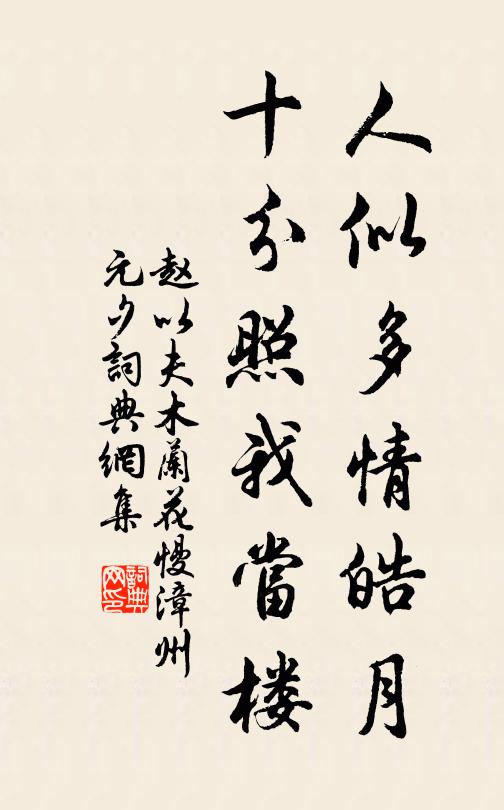 人似多情皓月
十分照我當楼
赵以夫木蘭花慢漳州
元夕詞典網集
詞典
网印